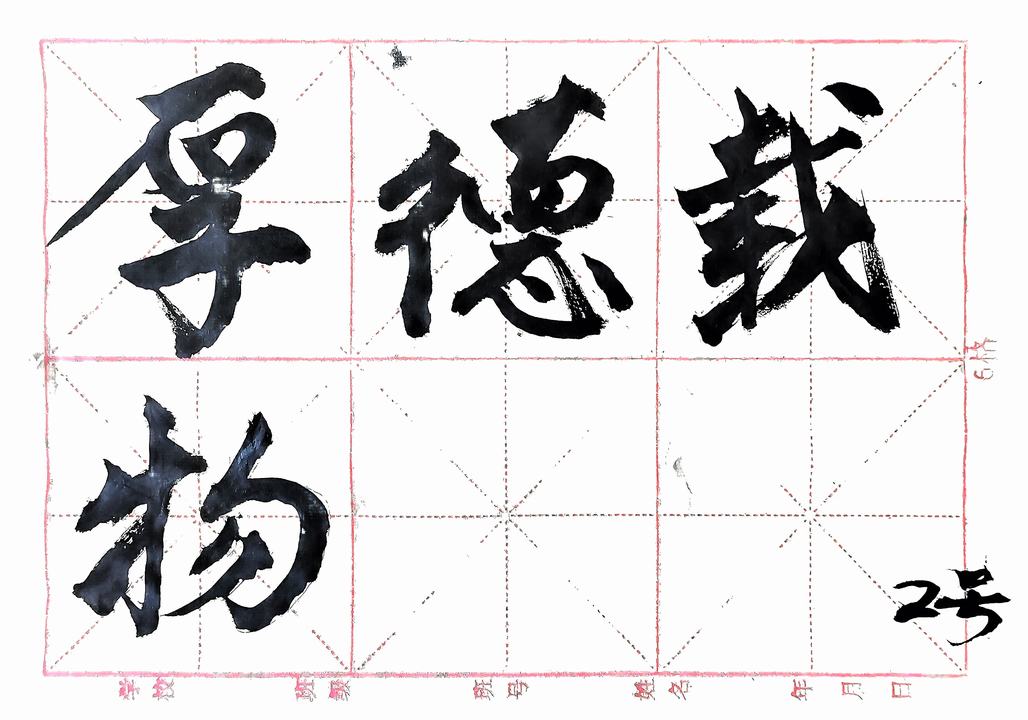 厚德载
物
2号
6格
学校 班级 班号 姓名 年 月 日